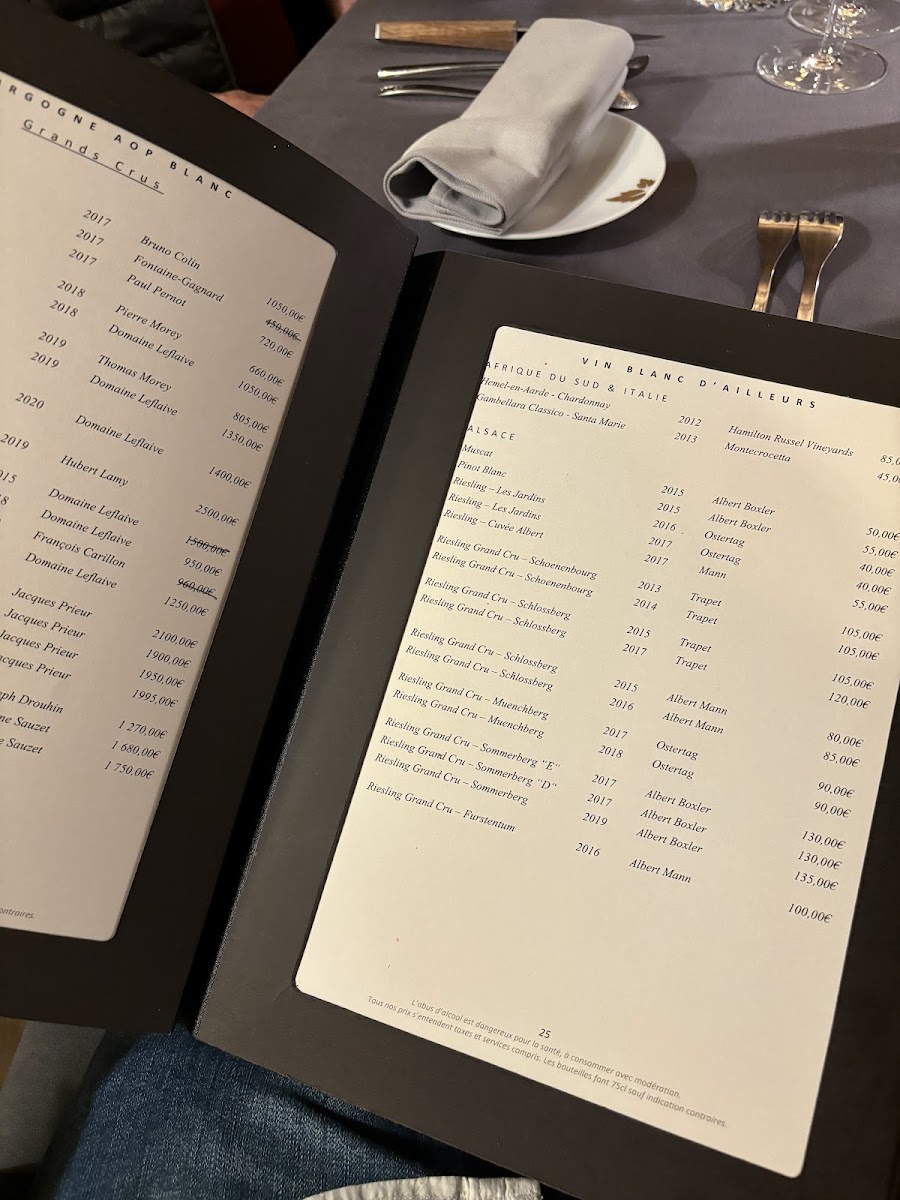 RGOGNE AOP BLANC
Grands Crus
2017 Bruno Colin 1050,00€
2017 Fontaine-Gagnard 450,00€
2017 Paul Pernot 720,00€
2018 Pierre Morey 660,00€
2018 Domaine Leflaive 1050,00€
2019 Thomas Morey 805,00€
2019 Domaine Leflaive 1350,00€
2020 Domaine Leflaive 1400,00€
2019 Hubert Lamy 2500,00€
015 Domaine Leflaive 1500,00€
8 Domaine Leflaive 950,00€
François Carillon 960,00€
Domaine Leflaive 1250,00€
Jacques Prieur 2100,00€
Jacques Prieur 1900,00€
Jacques Prieur 1950,00€
acques Prieur 1995,00€
eph Drouhin 1 270,00€
ne Sauzet 1 680,00€
e Sauzet 1 750,00€
ontraires.
VIN BLANC D'AILLEURS
AFRIQUE DU SUD & ITALIE
Hemel-en-Aarde - Chardonnay 2012 Hamilton Russel Vineyards 85,0
Gambellara Classico - Santa Marie 2013 Montecrocetta 45,0
ALSACE
Muscat 2015 Albert Boxler 50,00€
Pinot Blanc 2015 Albert Boxler 55,00€
Riesling – Les Jardins 2016 Ostertag 40,00€
Riesling – Les Jardins 2017 Ostertag 40,00€
Riesling – Cuvée Albert 2017 Mann 55,00€
Riesling Grand Cru – Schoenenbourg 2013 Trapet 105,00€
Riesling Grand Cru – Schoenenbourg 2014 Trapet 105,00€
Riesling Grand Cru – Schlossberg 2015 Trapet 105,00€
Riesling Grand Cru – Schlossberg 2017 Trapet 120,00€
Riesling Grand Cru – Schlossberg 2015 Albert Mann 80,00€
Riesling Grand Cru – Schlossberg 2016 Albert Mann 85,00€
Riesling Grand Cru – Muenchberg 2017 Ostertag 90,00€
Riesling Grand Cru – Muenchberg 2018 Ostertag 90,00€
Riesling Grand Cru – Sommerberg "E" 2017 Albert Boxler 130,00€
Riesling Grand Cru – Sommerberg "D" 2017 Albert Boxler 130,00€
Riesling Grand Cru – Sommerberg 2019 Albert Boxler 135,00€
Riesling Grand Cru – Furstentum 2016 Albert Mann 100,00€
25
L'abus d'alcool est dangereux pour la santé, à consommer avec modération.
Tous nos prix s'entendent taxes et services compris. Les bouteilles font 75cl sauf indication contraires.